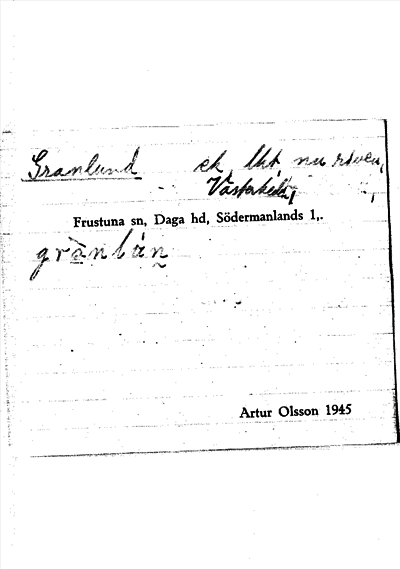 Granlund ek lht nu riven,
Västerkälla,
Frustuna sn, Daga hd, Södermanlands l,.
grànlán
Artur Olsson 1945